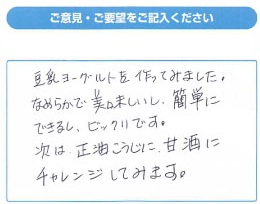 ご意見・ご要望をご記入ください
豆乳ヨーグルトを作ってみました。
なめらかで美味しいし、簡単に
できるし、ビックリです。
次は正油こうじに、甘酒に
チャレンジしてみます。